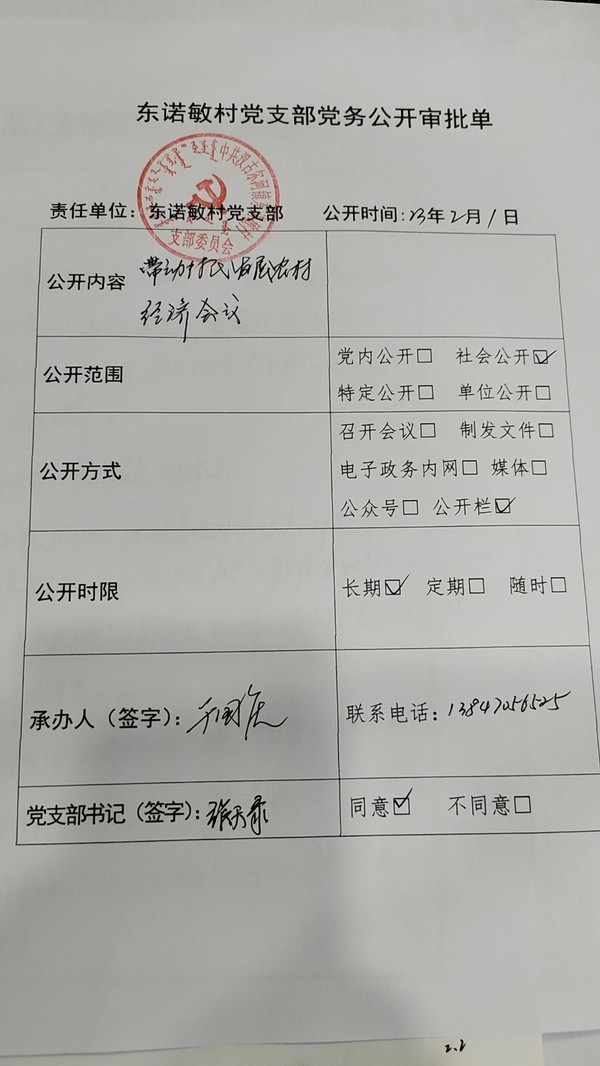 东诺敏村党支部党务公开审批单
支部委员会
责任单位：东诺敏村党支部 公开时间：23年2月1日
公开内容 带动村民发展农村
经济会议
公开范围 党内公开□ 社会公开☑
特定公开□ 单位公开□
公开方式 召开会议□ 制发文件□
电子政务内网□ 媒体□
公众号□ 公开栏☑
公开时限 长期☑ 定期□ 随时□
承办人（签字）： 联系电话：13847056525
党支部书记（签字）： 同意☑ 不同意□
2.2